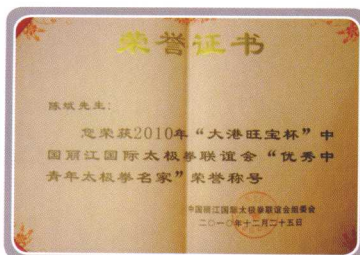 荣誉证书
陈斌先生：
您荣获2010年“大港旺宝杯”中
国丽江国际太极拳联谊会“优秀中
青年太极拳名家”荣誉称号
中国丽江国际太极拳联谊会组委会
二○一○年十二月二十五日